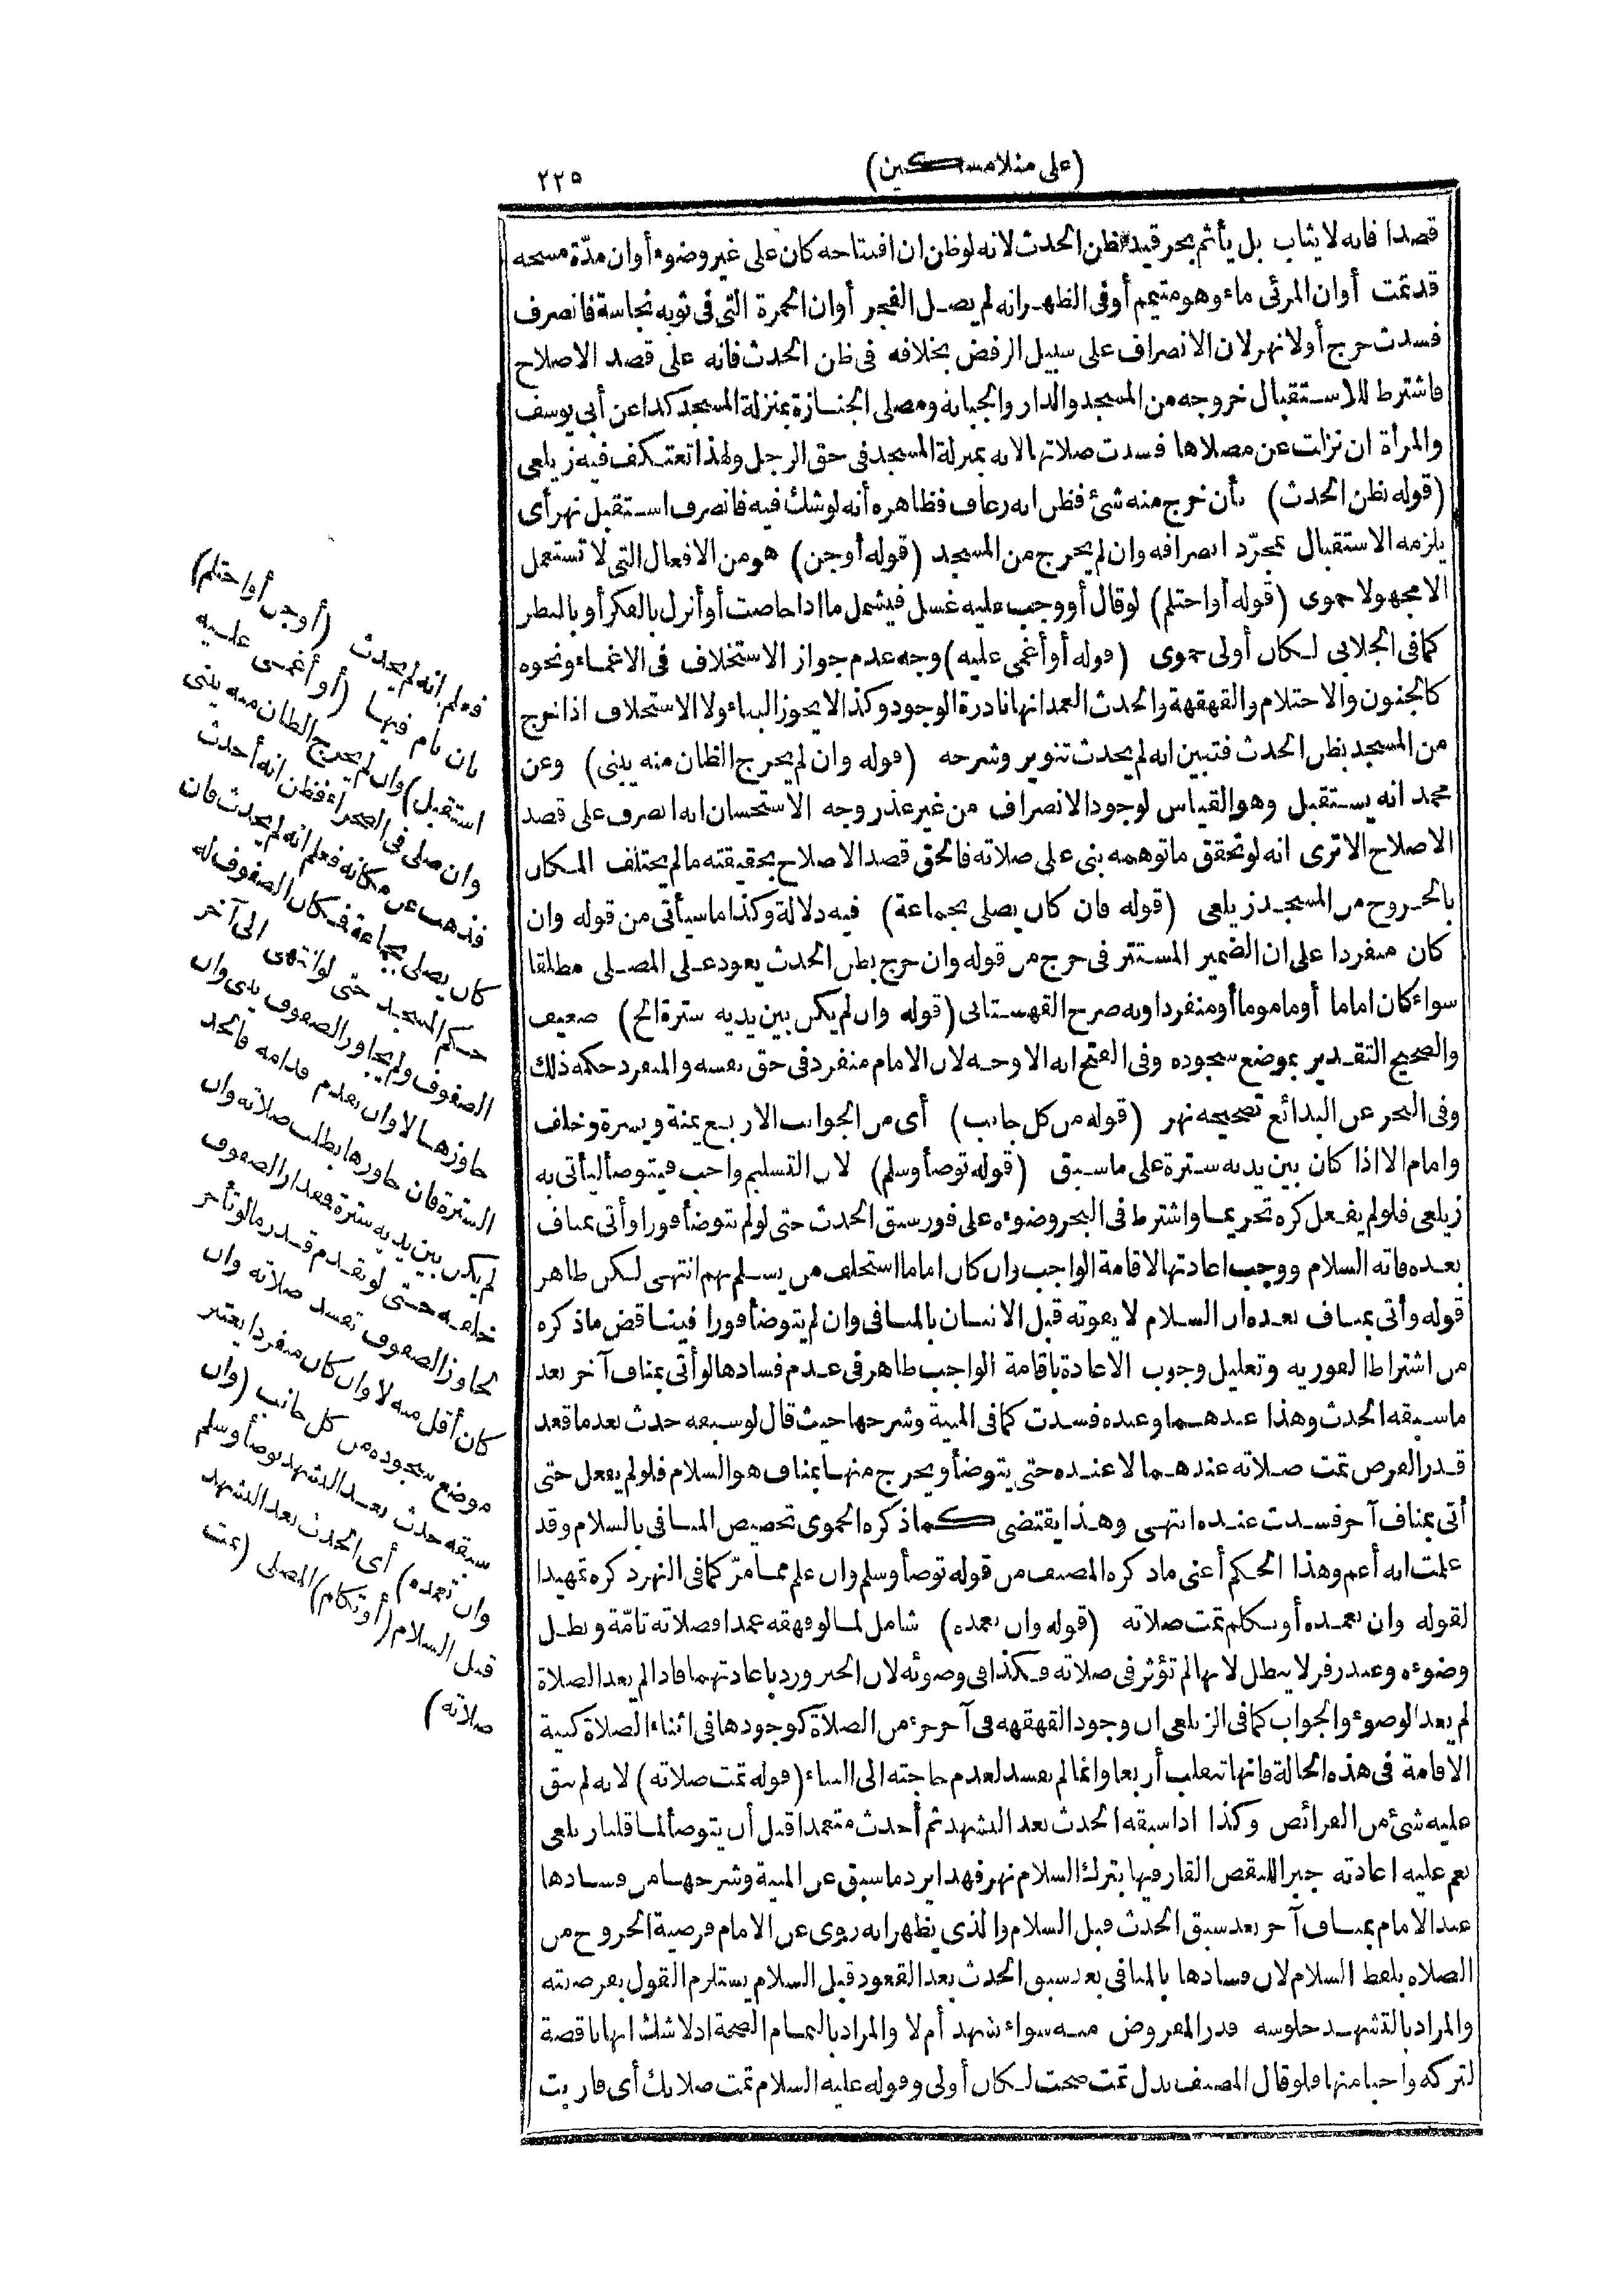 (على منلا مسكين)
٢٢٥
قصدا فانه لا يثاب بل يأثم بحر قيد بظن الحدث لانه لوظن ان افتتاحه كان على غير وضوء أوان مدّة مسحه
قد تمت أوان المرئى ماء وهو متيمم أوفى الظهر انه لم يصل الفجر أوان الحمرة التى فى ثوبه نجاسة فانصرف
فسدت خرج أولا نهر لان الانصراف على سبيل الرفض بخلافه فى ظن الحدث فانه على قصد الاصلاح
فاشترط للاستقبال خروجه من المسجد والدار والجبانة ومصلى الجنازة بمنزلة المسجد كذا عن أبى يوسف
والمرأة ان نزلت عن مصلاها فسدت صلاتها لانه بمنزلة المسجد فى حق الرجل ولهذا تعتكف فيه زيلعى
(قوله بظن الحدث) بأن خرج منه شئ فظن انه رعاف فظاهره أنه لوشك فيه فانصرف استقبل نهر أى
يلزمه الاستقبال بمجرّد انصرافه وان لم يخرج من المسجد (قوله أوجن) هو من الافعال التى لا تستعمل
الا مجهولا حموى (قوله أواحتلم) لوقال أووجب عليه غسل فيشمل ما اذا حاضت أوأنزل بالفكر أو بالنظر
كما فى الجلابى لكان أولى حموى (قوله أوأغمى عليه) وجه عدم جواز الاستخلاف فى الاغماء ونحوه
كالجنون والاحتلام والقهقهة والحدث العمد انها نادرة الوجود وكذا لا يجوز البناء ولا الاستخلاف اذا خرج
من المسجد بظن الحدث فتبين انه لم يحدث تنوير وشرحه (قوله وان لم يخرج الظان منه يبنى) وعن
محمد انه يستقبل وهو القياس لوجود الانصراف من غير عذر وجه الاستحسان انه انصرف على قصد
الاصلاح ألا ترى انه لو تحقق ما توهمه بنى على صلاته فالحق قصد الاصلاح بحقيقته ما لم يختلف المكان
بالخروج من المسجد زيلعى (قوله فان كان يصلى بجماعة) فيه دلالة وكذا ما سيأتى من قوله وان
كان منفردا على ان الضمير المستتر فى خرج من قوله وان خرج بظن الحدث يعود على المصلى مطلقا
سواء كان اماما أو مأموما أو منفردا وبه صرح القهستانى (قوله وان لم يكن بين يديه سترة الخ) ضعيف
والصحيح التقدير بموضع سجوده وفى الفتح انه الاوجه لان الامام منفرد فى حق نفسه والمنفرد حكمه ذلك
وفى البحر عن البدائع تصحيحه نهر (قوله من كل جانب) أى من الجوانب الاربع يمنة ويسرة وخلف
وامام الا اذا كان بين يديه سترة على ما سبق (قوله توضأ وسلم) لان التسليم واجب فيتوضأ ليأتى به
زيلعى فلو لم يفعل كره تحريما واشترط فى البحر وضوءه على فور سبق الحدث حتى لو لم يتوضأ فورا وأتى بمناف
بعده فاته السلام ووجب اعادتها لاقامة الواجب وان كان اماما استخلف من يسلم بهم انتهى لكن ظاهر
قوله وأتى بمناف بعده ان السلام لا يفوته قبل الاتيان بالمنافى وان لم يتوضأ فورا فيناقض ما ذكره
من اشتراط الفورية وتعليل وجوب الاعادة باقامة الواجب ظاهر فى عدم فسادها لو أتى بمناف آخر بعد
ما سبقه الحدث وهذا عندهما وعنده فسدت كما فى المنية وشرحها حيث قال لو سبقه حدث بعد ما قعد
قدر الفرض تمت صلاته عندهما لا عنده حتى يتوضأ ويخرج منها بمناف هو السلام فلو لم يفعل حتى
أتى بمناف آخر فسدت عنده انتهى وهذا يقتضى كما ذكره الحموى تخصيص المنافى بالسلام وقد
علمت انه أعم وهذا الحكم أعنى ما ذكره المصنف من قوله توضأ وسلم وان علم مما مرّ كما فى النهر ذكره تمهيدا
لقوله وان تعمده أو تكلم تمت صلاته (قوله وان تعمده) شامل لما لو قهقه عمدا فصلاته تامّة وبطل
وضوءه وعند زفر لا يبطل لانها لم تؤثر فى صلاته فكذا فى وضوئه لان الخبر ورد باعادتهما فاذا لم يعد الصلاة
لم يعد الوضوء والجواب كما فى الزيلعى ان وجود القهقهة فى آخر جزء من الصلاة كوجودها فى اثناء الصلاة كنية
الاقامة فى هذه الحالة فانها تنقلب أربعا وانما لم يفسد لعدم حاجته الى البناء (قوله تمت صلاته) لانه لم يبق
عليه شئ من الفرائض وكذا اذا سبقه الحدث بعد التشهد ثم أحدث متعمدا قبل أن يتوضأ لما قلنا زيلعى
نعم عليه اعادته جبرا للنقص القار فيها بترك السلام نهر فهذا يرد ما سبق عن المنية وشرحها من فسادها
عند الامام بمناف آخر بعد سبق الحدث قبل السلام والذى يظهر انه روى عن الامام فرضية الخروج من
الصلاة بلفظ السلام لان فسادها بالمنافى بعد سبق الحدث بعد القعود قبل السلام يستلزم القول بفرضيته
والمراد بالتشهد جلوسه قدر المفروض منه سواء تشهد أم لا والمراد بالتمام الصحة اذ لا شك انها ناقصة
لتركه واجبا منها فلو قال المصنف بدل تمت صحت لكان أولى وقوله عليه السلام تمت صلاتك أى قاربت
فعلم انه لم يحدث (أوجن أواحتلم)
بان نام فيها (أوأغمى عليه
استقبل) وان لم يخرج الظان منه يبنى
وان صلى فى الصحراء فظن انه أحدث
فذهب عن مكانه فعلم انه لم يحدث فان
كان يصلى بجماعة فكان الصفوف له
حكم المسجد حتى لو انتهى الى آخر
الصفوف ولم يجاوز الصفوف بنى وان
جاوزها لا وان تقدم قدامه فالحد
السترة فان جاوزها بطلت صلاته وان
لم يكن بين يديه سترة فمقدار الصفوف
خلفه حتى لو تقدم قدر ما لو تأخر
لجاوز الصفوف تفسد صلاته وان
كان أقل منه لا وان كان منفردا يعتبر
موضع سجوده من كل جانب (وان
سبقه حدث بعد التشهد توضأ وسلم
وان تعمده) أى الحدث بعد التشهد
قبل السلام (أو تكلم) المصلى (تمت
صلاته)